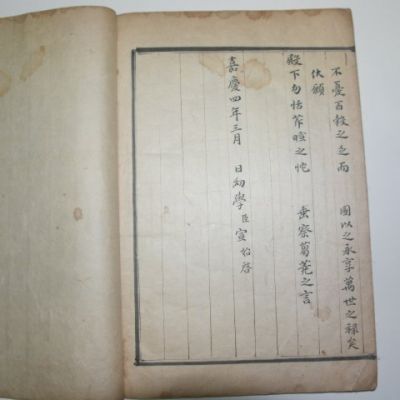 不憂百穀之乏而 國以之永享萬世之祿矣
伏願
殿下勿怪 之 垂察蒭蕘之言
嘉慶四年三月 日幼學臣宣始啓